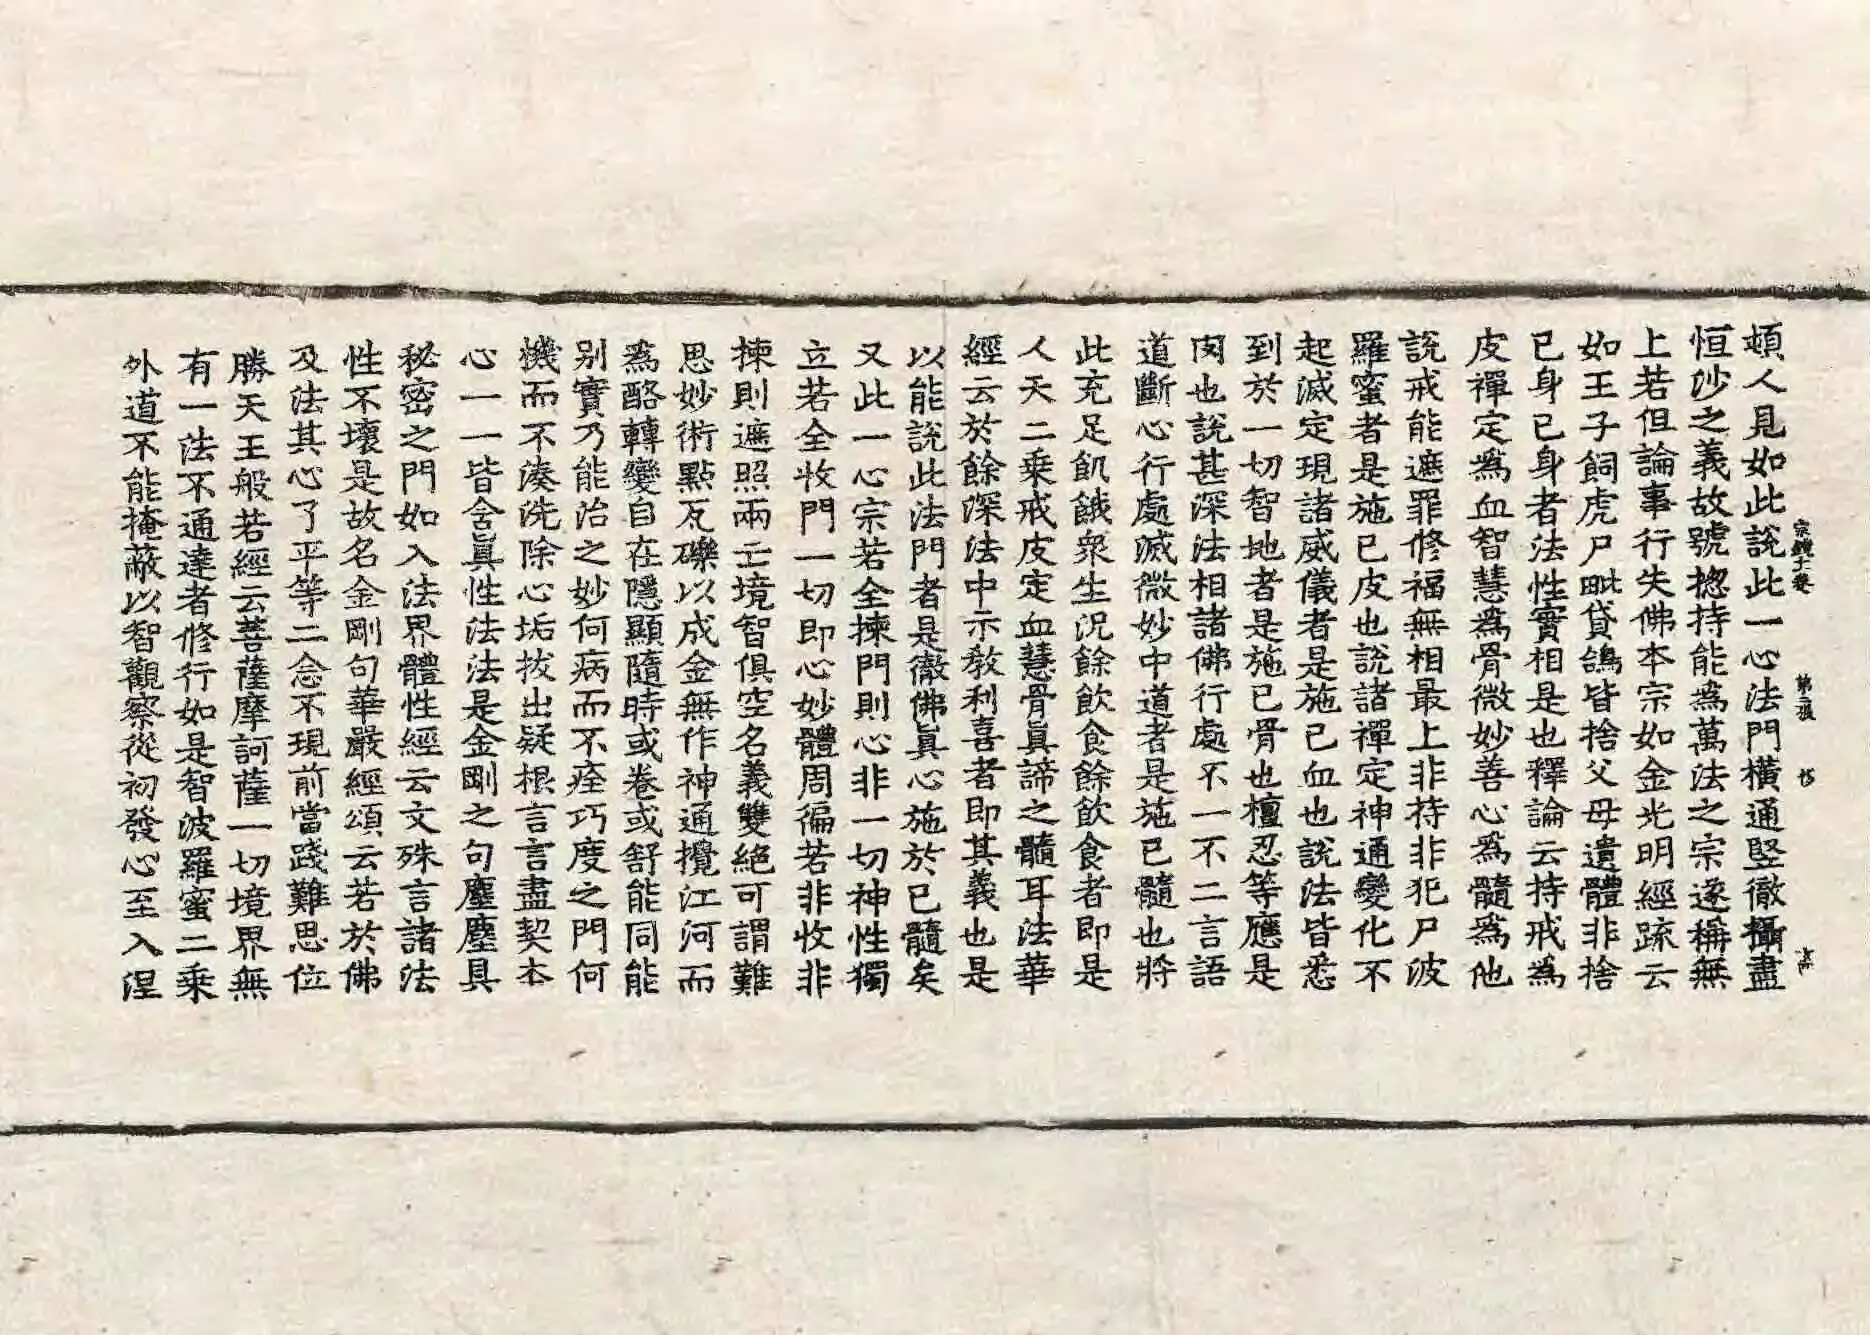 頓人見如此說此一心法門橫通竪徹攝盡
恒沙之義故號揔持能爲萬法之宗遂稱無
上若但論事行失佛本宗如金光明經䟽云
如王子飼虎尸毗貸鴿皆捨父母遺體非捨
已身已身者法性實相是也釋論云持戒爲
皮禪定爲血智慧爲骨微妙善心爲髓爲他
說戒能遮罪修福無相最上非持非犯尸波
羅蜜者是施已皮也說諸禪定神通變化不
起滅定現諸威儀者是施已血也說法皆悉
到於一切智地者是施已骨也檀忍等應是
肉也說甚深法相諸佛行處不一不二言語
道斷心行處滅微妙中道者是施已髓也將
此充足飢餓衆生況餘飲食餘飲食者即是
人天二乗戒皮定血慧骨真諦之髓耳法華
經云於餘深法中示教利喜者即其義也是
以能說此法門者是徹佛真心施於已髓矣
又此一心宗若全揀門則心非一切神性獨
立若全收門一切即心妙體周徧若非收非
揀則遮照兩亡境智俱空名義雙絕可謂難
思妙術點瓦礫以成金無作神通攪江河而
爲酪轉變自在隱顯隨時或卷或舒能同能
别實乃能治之妙何病而不痊巧度之門何
機而不湊洗除心垢拔出疑根言言盡契本
心一一皆含真性法法是金剛之句塵塵具
秘密之門如入法界體性經云文殊言諸法
性不壞是故名金剛句華嚴經頌云若於佛
及法其心了平等二念不現前當踐難思位
勝天王般若經云菩薩摩訶薩一切境界無
有一法不通達者修行如是智波羅蜜二乗
外道不能掩蔽以智觀察從初發心至入涅